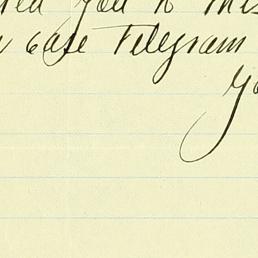 you to this
case Telegram
Yo